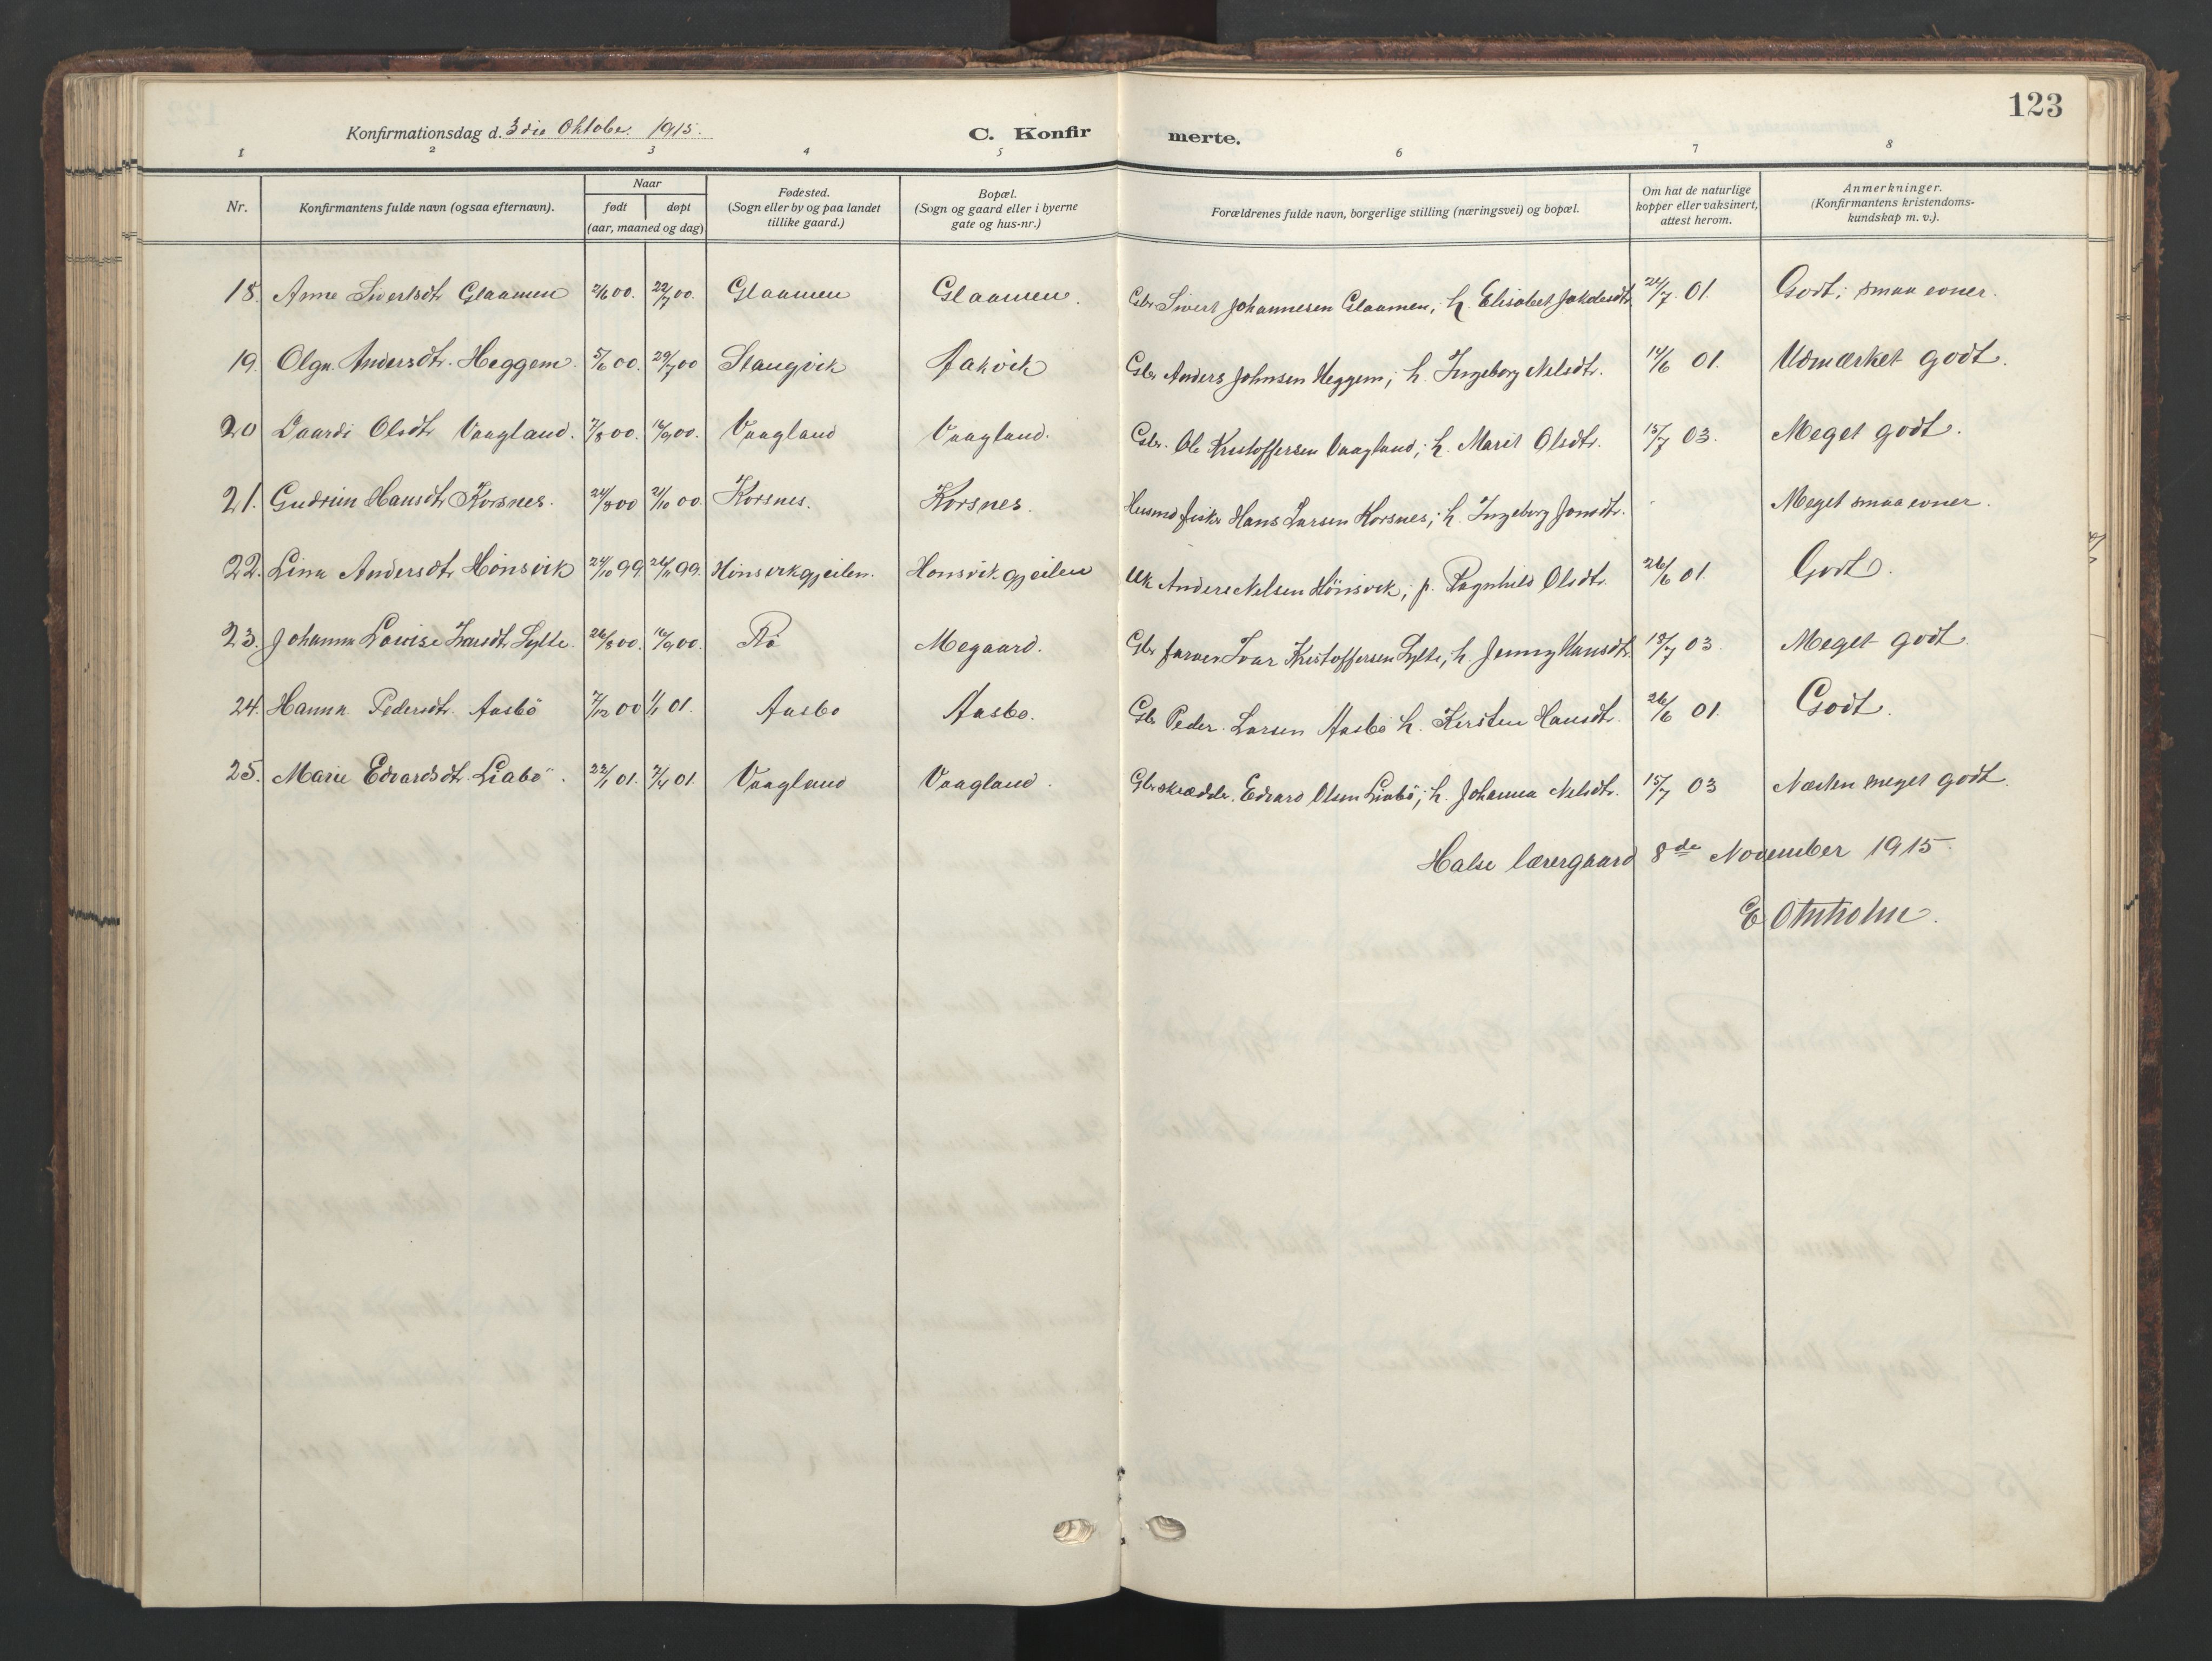 123
Konfirmationsdag d. 3die Oktober 1915.
C. Konfirmerte.
1 2 3 4 5 6 7 8
Nr. | Konfirmantens fulde navn (ogsaa efternavn). | Naar født | døpt (aar, maaned og dag) | Fødested. (Sogn eller by og paa landet tillike gaard.) | Bopæl. (Sogn og gaard eller i byerne gate og hus-nr.) | Forældrenes fulde navn, borgerlige stilling (næringsvei) og bopæl. | Om hat de naturlige kopper eller vaksinert, attest herom. | Anmerkninger. (Konfirmantens kristendomskundskap m. v.).
18. Anne Sivertsdtr Glaamen 2/6 00. 22/7 00. Glaamen Glaamen. Gbr Sivert Johannesen Glaamen; h. Elisabet 24/7 01. Godt; smaa evner.
19. Olga Andersdtr. Heggem. 5/6 00. 29/7 00 Stangvik Aakvik Gbr Anders Johnsen Heggem; h. Ingeborg Nelsdtr. 14/6 01. Udmærket godt.
20 Olsdtr Vaagland. 7/8 00. 16/9 00. Vaagland Vaagland. Gbr. Ole Kristoffersen Vaagland; h. Marit Olsdtr. 15/7 03. Meget godt.
21. Gudrun Hansdtr Korsnes. 24/8 00 21/10 00. Korsnes. Korsnes. Husmd fisker Hans Larsen Korsnes; h. Ingeborg Jonsdtr. Meget smaa evner.
22. Lina Andersdtr Hönsvik 24/10 99. 26/11 99. Hönsvikgjeilen. Honsvikgjeilen Uk Anders Nelsen Hönsvik; p. Ragnhild Olsdtr. 26/6 01. Godt.
23. Johanna Lovise Ivarsdtr Sylte. 26/8 00. 16/9 00. Rö Megaard. Gbr farver Ivar Kristoffersen Sylte, h. Jenny Hansdtr. 18/7 03. Meget godt.
24. Hanna Pedersdtr. Aasbö 7/12 00 1/1 01. Aasbo Aasbo. Gb Peder Larsen Aasbö h. Kirsten Hansdtr. 26/6 01. Godt.
25. Marie Edvardsdtr. Liabö. 22/1 01. 7/4 01. Vaagland Vaagland. Gbr skrædder. Edvard Olsen Liabö; h. Johanna Nelsdtr. 15/7 03 Næsten meget godt.
Halse lærergaard 8de November 1915.
E Otnholm.